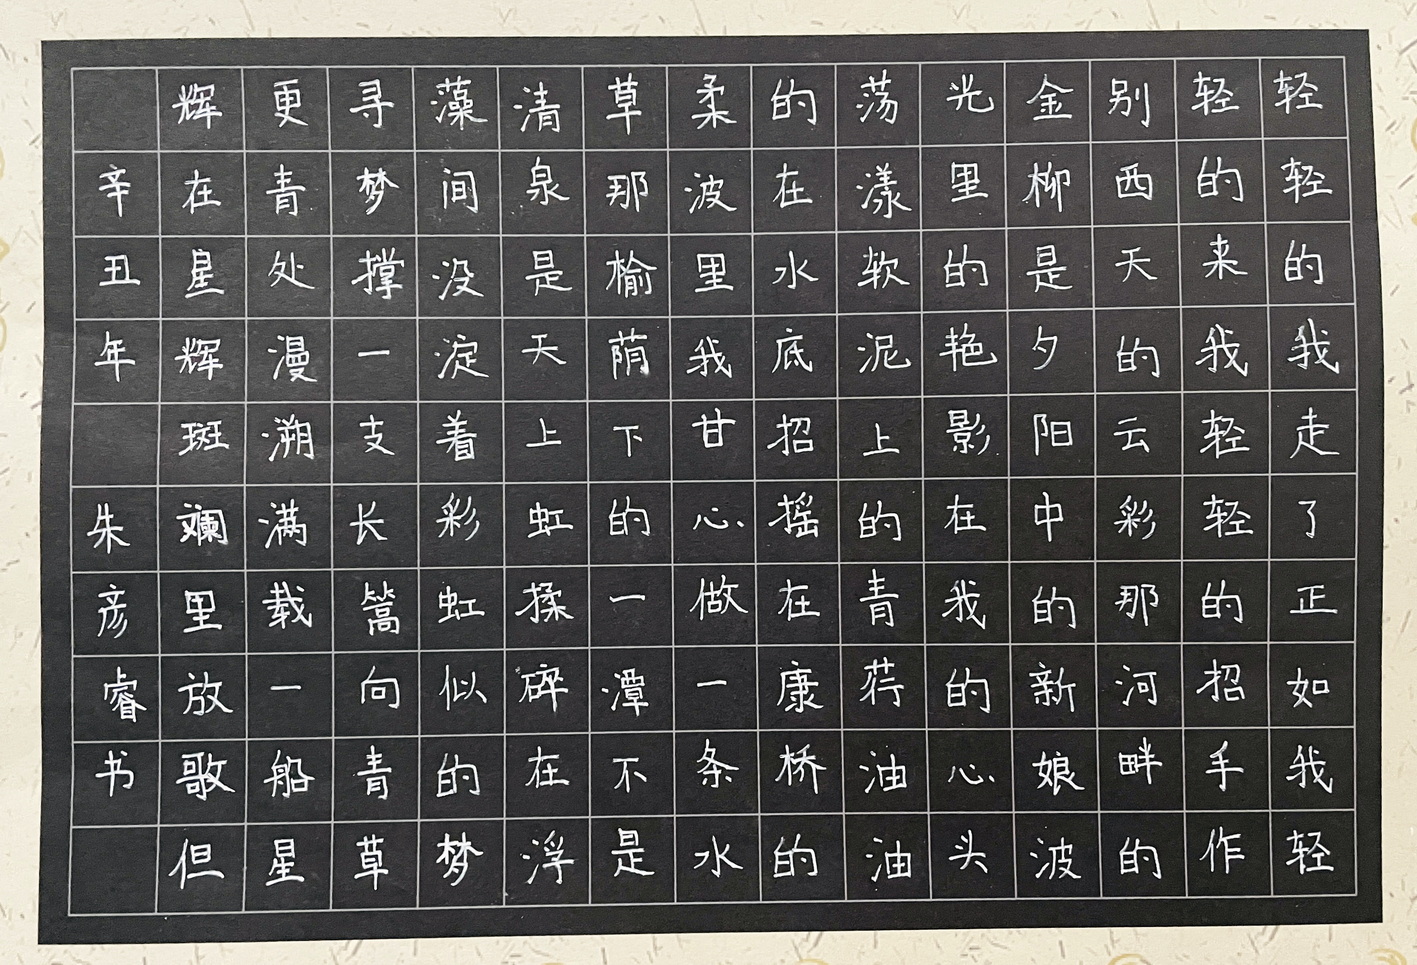 轻轻的我走了正如我轻
轻的来我轻轻的招手作
别西天的云彩那河畔的
金柳是夕阳中的新娘波
光里的艳影在我的心头
荡漾软泥上的青荇油油
的在水底招摇在康桥的
柔波里我甘心做一条水
草那榆荫下的一潭不是
清泉是天上虹揉碎在浮
藻间没淀着彩虹似的梦
寻梦撑一支长篙向青草
更青处漫溯满载一船星
辉在星辉斑斓里放歌但
辛丑年 朱彦睿书